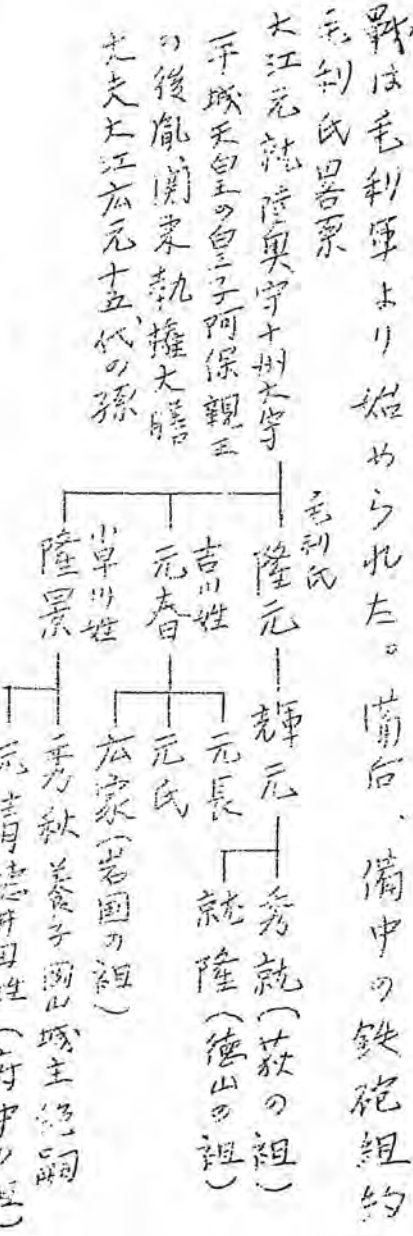 戦は毛利軍より始められた。備后、備中の鉄砲組約
毛利氏畧票
大江元就 陸奥守十州太守
平城天皇の皇子阿保親王
の後胤、関東執権大膳
大夫大江広元十五代の孫
毛利氏
隆元
輝元
秀就(萩の祖)
就隆(徳山の祖)
吉川姓
元春
元長
元氏
広家(岩国の祖)
小早川姓
隆景
秀秋 養子岡山城主 絶嗣